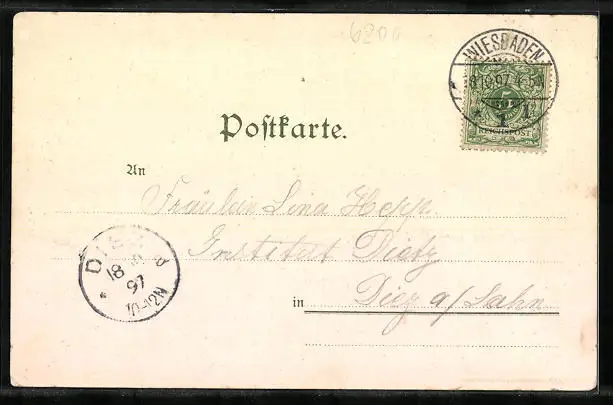 6200
WIESBADEN
18 10 97 4-5N
* 1 1.
5
REICHSPOST
Postkarte.
An
Fräulein Lina Hepp.
Institut Dietz
in Diez a/Lahn
DIEZ
18
97
* 10-12N